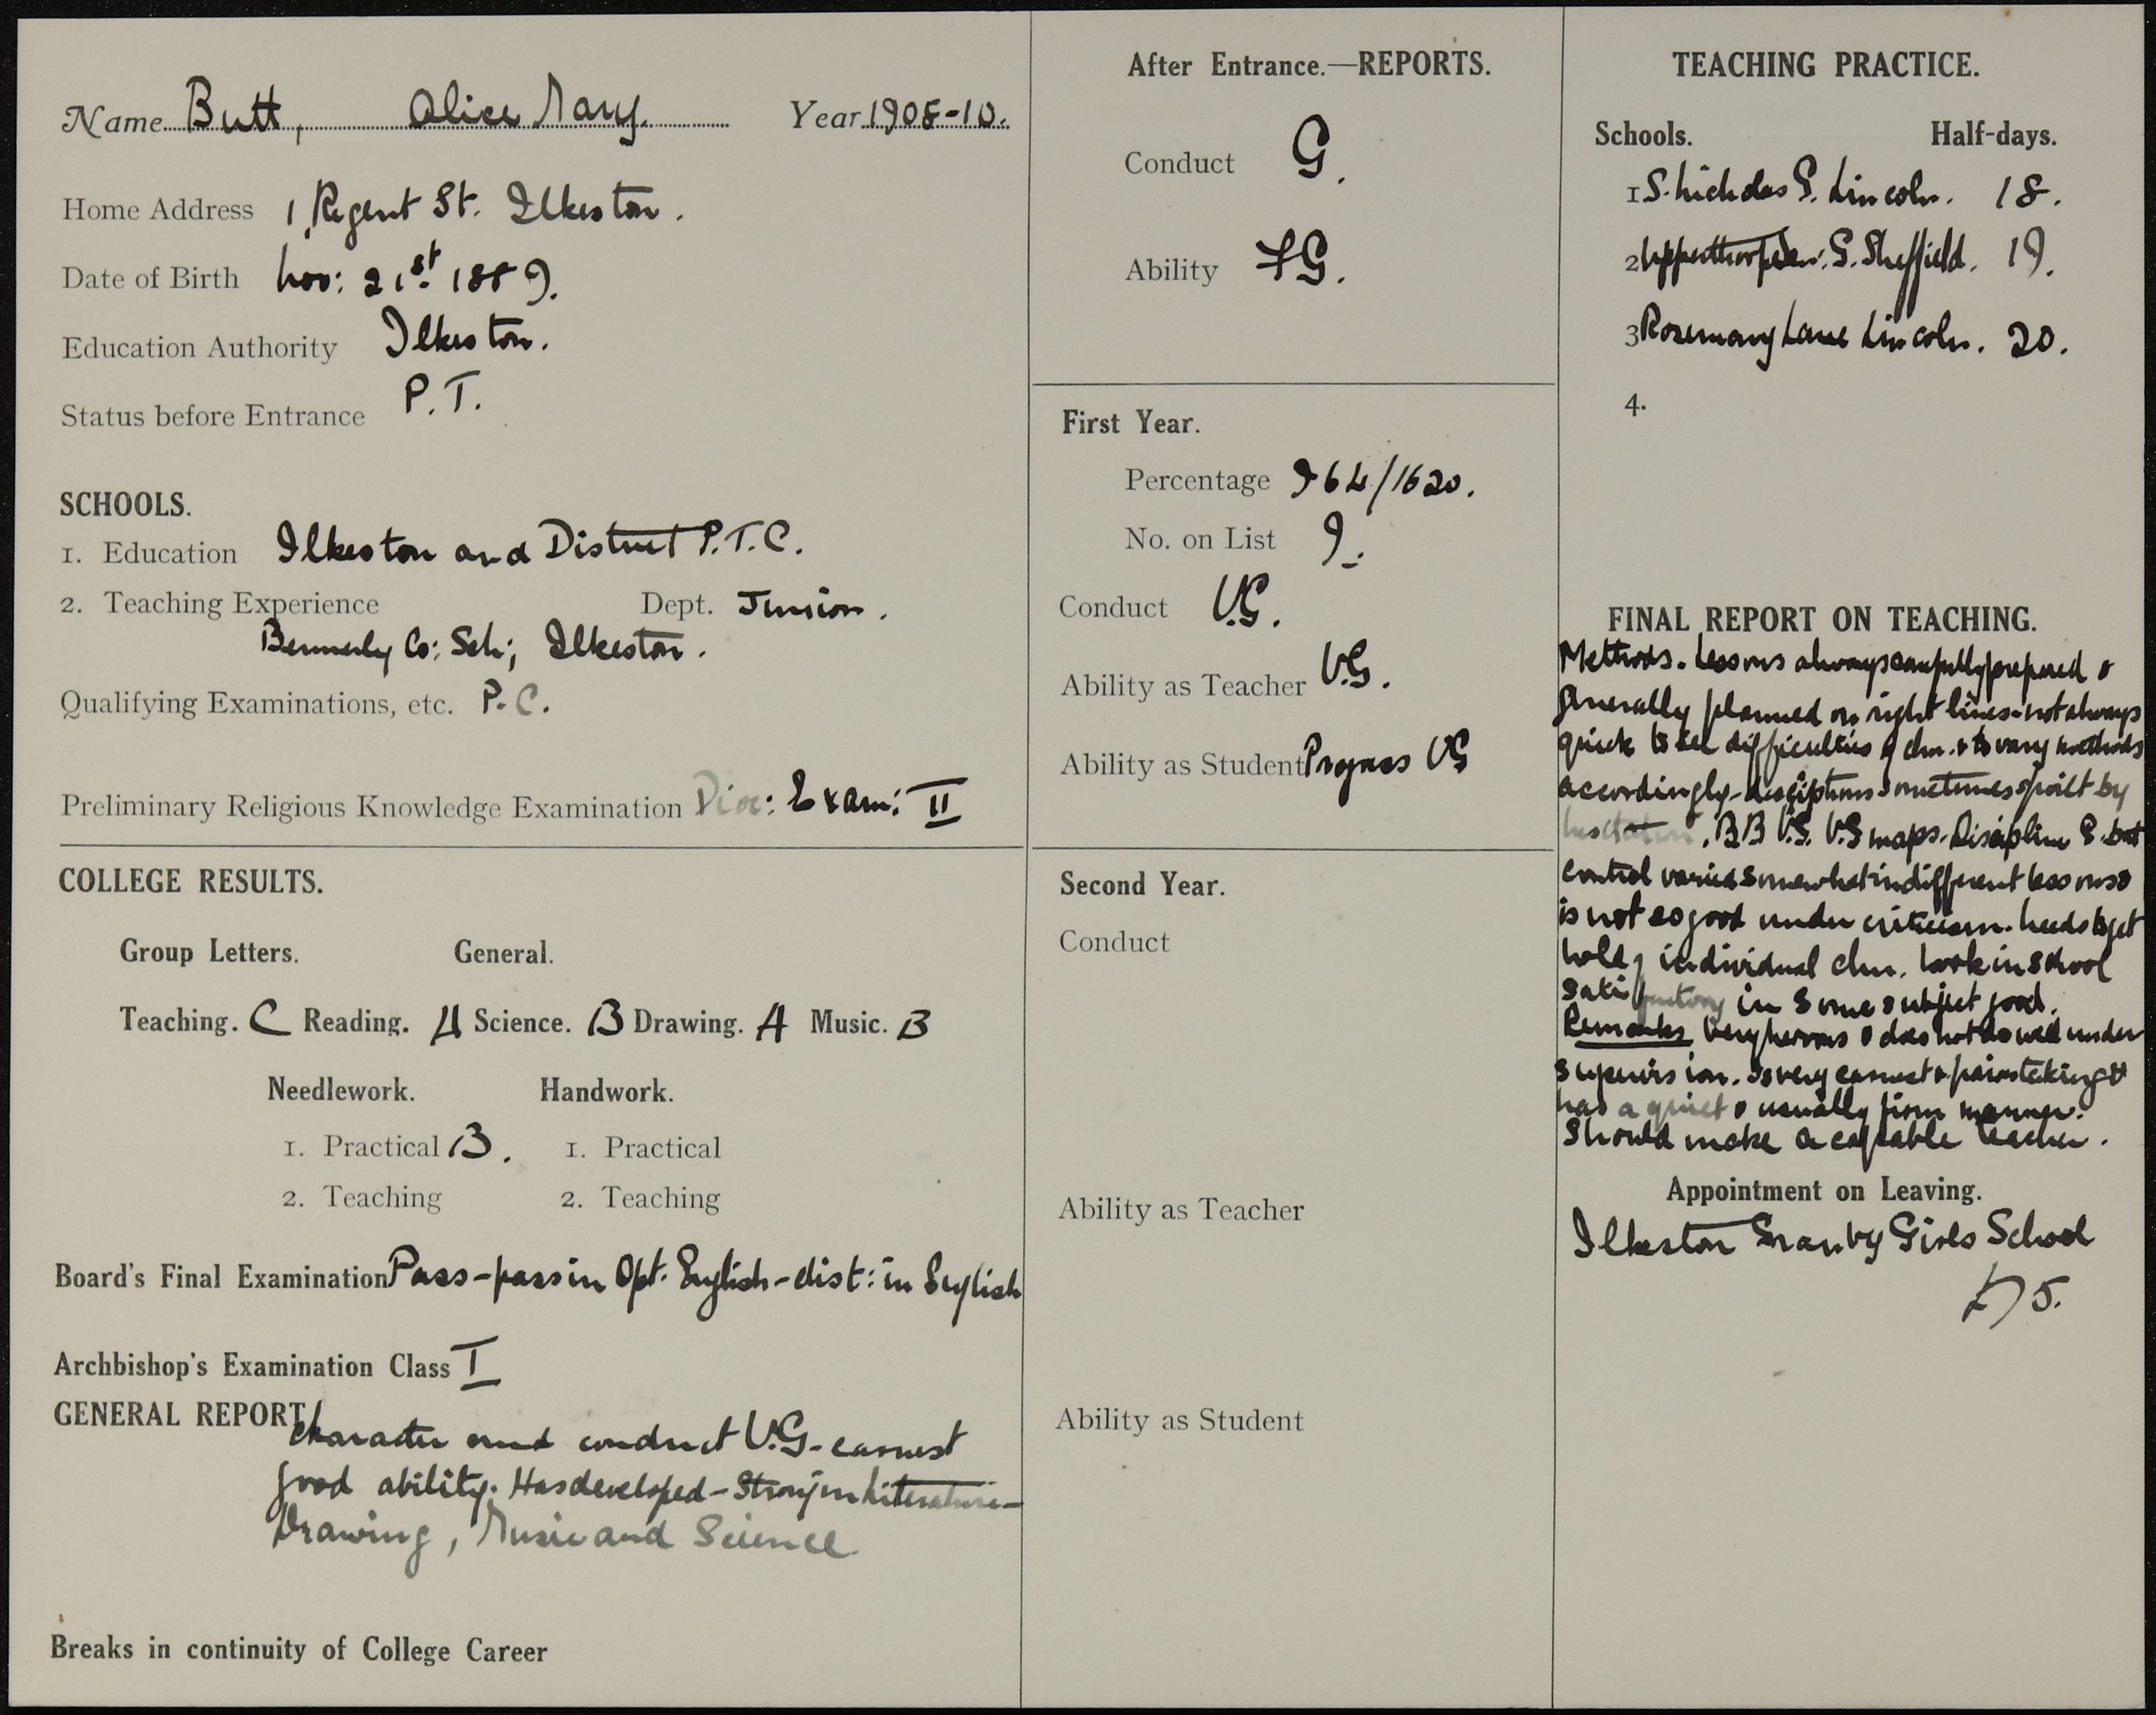 Name Butt, Alice Mary. Year 1908-10.
Home Address 1, Regent St. Ilkeston.
Date of Birth Nov: 21st 1889.
Education Authority Ilkeston.
Status before Entrance P.T.
SCHOOLS.
1. Education Ilkeston and District P.T.C.
2. Teaching Experience Dept. Junior.
Bennerly Co: Sch; Ilkeston.
Qualifying Examinations, etc. P.C.
Preliminary Religious Knowledge Examination Dioc: Exam: II
COLLEGE RESULTS.
Group Letters. General.
Teaching. C Reading. Science. B Drawing. A Music. B
Needlework. Handwork.
1. Practical B. 1. Practical
2. Teaching 2. Teaching
Board's Final Examination Pass - pass in Opt. English - dist: in English
Archbishop's Examination Class I
GENERAL REPORT
Character and conduct V.G - earnest
good ability. Has developed - Strong in Literature -
Drawing, Music and Science
Breaks in continuity of College Career
After Entrance.—REPORTS.
Conduct G.
Ability FG.
First Year.
Percentage 964/1620.
No. on List 9.
Conduct V.G.
Ability as Teacher V.G.
Ability as Student Progress VG
Second Year.
Conduct
Ability as Teacher
Ability as Student
TEACHING PRACTICE.
Schools. Half-days.
1 S. Nicholas G. Lincoln. 18.
2 Upperthorpe G. Sheffield. 19.
3 Rosemary Lane Lincoln. 20.
4.
FINAL REPORT ON TEACHING.
Methods. Lessons always carefully prepared &
generally planned on right lines - not always
quick to see difficulties of chn. & to vary methods
accordingly - descriptions sometimes spoilt by
hesitation. BB V.G. V.G maps. Discipline G. but
control varies somewhat in different lessons &
is not so good under criticism. Needs to get
hold of individual chn. Work in school
satisfactory in some subject good.
Remarks Very nervous & does not do well under
supervision. Is very earnest & painstaking &
has a quiet & usually firm manner.
Should make a capable teacher.
Appointment on Leaving.
Ilkeston Granby Girls School
£75.